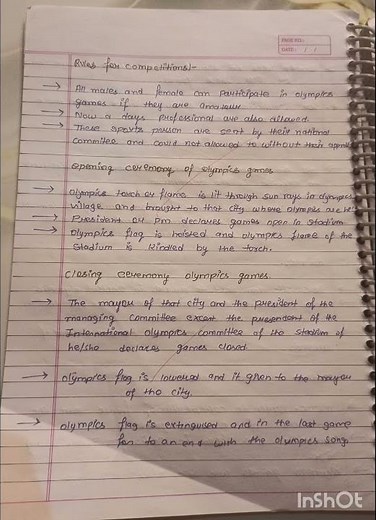 PAGE NO.:
DATE: / /
Rules for competitions:-
→ All males and female can participate in olympics
games if they are amateur
→ Now a days professional are also allowed.
→ These sports person are sent by their national
committee and could not allowed to without their
Opening ceremony of olympics games
→ Olympics torch or flame is lit through sun rays in olympics
village and brought to that city where olympics are
→ President or pm declares games open in stadium
→ Olympics flag is hoisted and olympics flame of the
stadium is kindled by the torch.
Closing ceremony olympics games.
→ The mayor of that city and the president of the
managing committee except the president of the
International olympics committee of the stadium of
he/she declares games closed.
→ Olympics flag is lowered and it given to the mayor
of the city.
→ Olympics flag is extinguised and in the last game
to an end with the olympics song.
InShOt